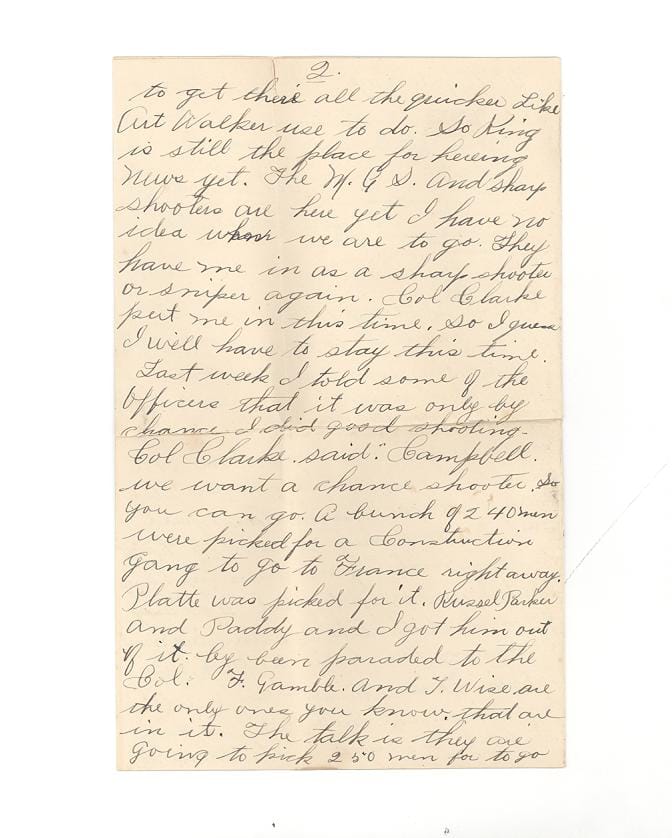 2.
to get there all the quicker Like
Art Walker use to do. So King
is still the place for hereing
News yet. The M. G S. And sharp
shooters are here yet I have no
idea when we are to go. They
have me in as a sharp shooter
or sniper again. Col Clarke
put me in this time. So I guess
I will have to stay this time.
Last week I told some of the
Officers that it was only by
chance I did good shooting.
Col Clarke. said". Campbell.
we want a chance shooter. So
you can go. A bunch of 240 men
were picked for a Construction
gang to go to France right away.
Platte was picked for it. Russel Parker
and Paddy and I got him out
of it. by been paraded to the
Col. F. Gamble. And T. Wise are
the only ones you know. that are
in it. The talk is they are
going to pick 250 men for to go